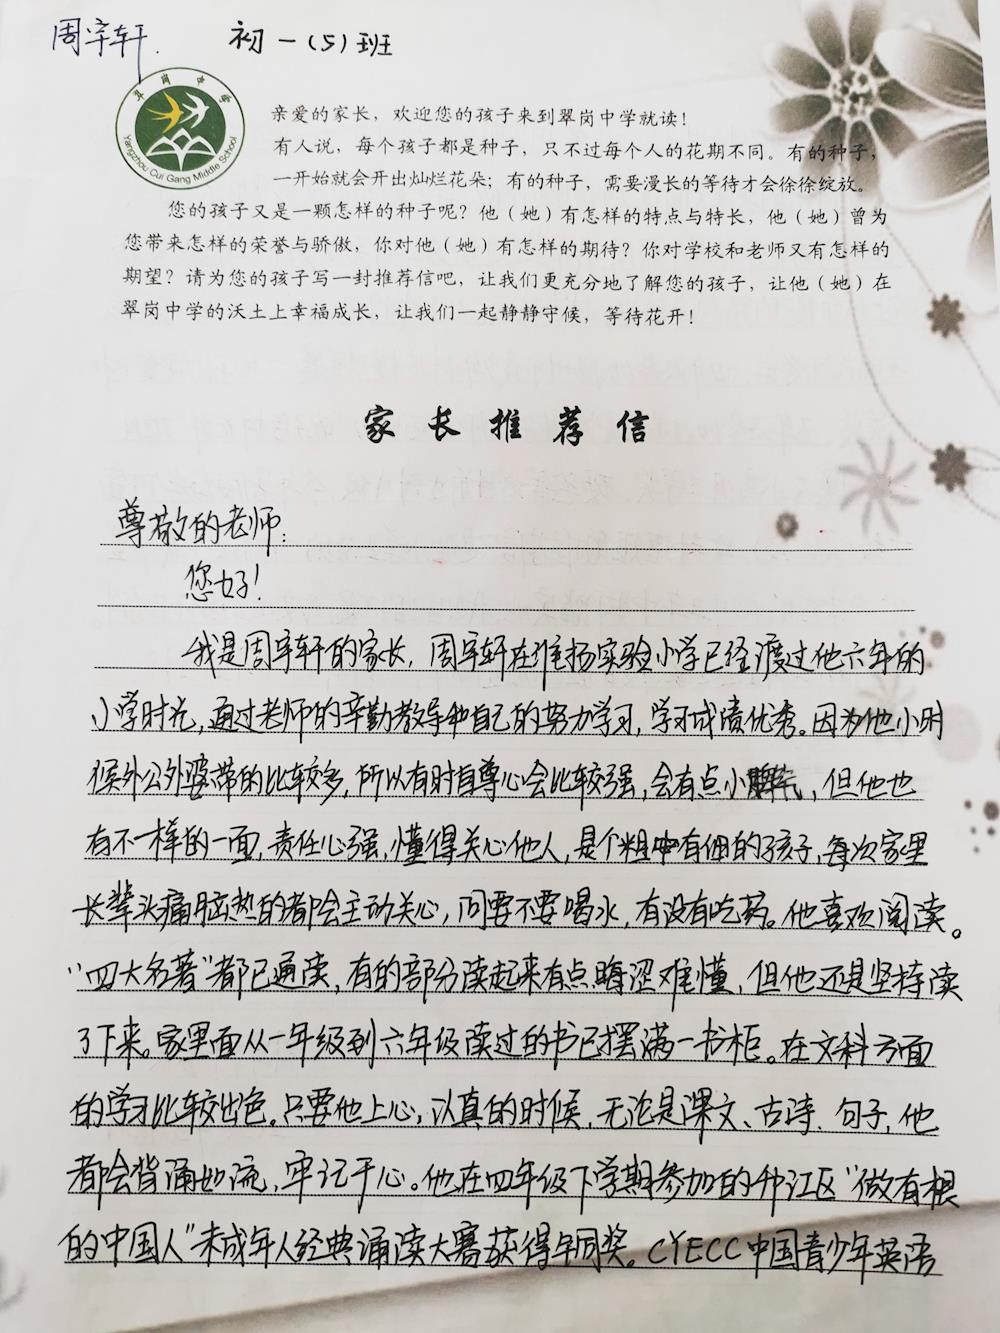 周宇轩. 初一(5)班
翠岗中学
Yangzhou Cui Gang Middle School
亲爱的家长，欢迎您的孩子来到翠岗中学就读！
有人说，每个孩子都是种子，只不过每个人的花期不同。有的种子，
一开始就会开出灿烂花朵；有的种子，需要漫长的等待才会徐徐绽放。
您的孩子又是一颗怎样的种子呢？他（她）有怎样的特点与特长，他（她）曾为
您带来怎样的荣誉与骄傲，你对他（她）有怎样的期待？你对学校和老师又有怎样的
期望？请为您的孩子写一封推荐信吧，让我们更充分地了解您的孩子，让他（她）在
翠岗中学的沃土上幸福成长，让我们一起静静守候，等待花开！
家长推荐信
尊敬的老师：
您好！
我是周宇轩的家长，周宇轩在维扬实验小学已经渡过他六年的
小学时光，通过老师的辛勤教导和自己的努力学习，学习成绩优秀。因为他小时
候外公外婆带的比较多，所以有时自尊心会比较强，会有点小脾气，但他也
有不一样的一面，责任心强，懂得关心他人，是个粗中有细的孩子，每次家里
长辈头痛脑热的都会主动关心，问要不要喝水，有没有吃药。他喜欢阅读。
“四大名著”都已通读，有的部分读起来有点晦涩难懂，但他还是坚持读
了下来。家里面从一年级到六年级读过的书已摆满一书柜。在文科方面
的学习比较出色。只要他上心，认真的时候，无论是课文、古诗、句子，他
都会背诵如流，牢记于心。他在四年级下学期参加的邗江区“做有根
的中国人”未成年人经典诵读大赛获得年同奖。CYECC中国青少年英语